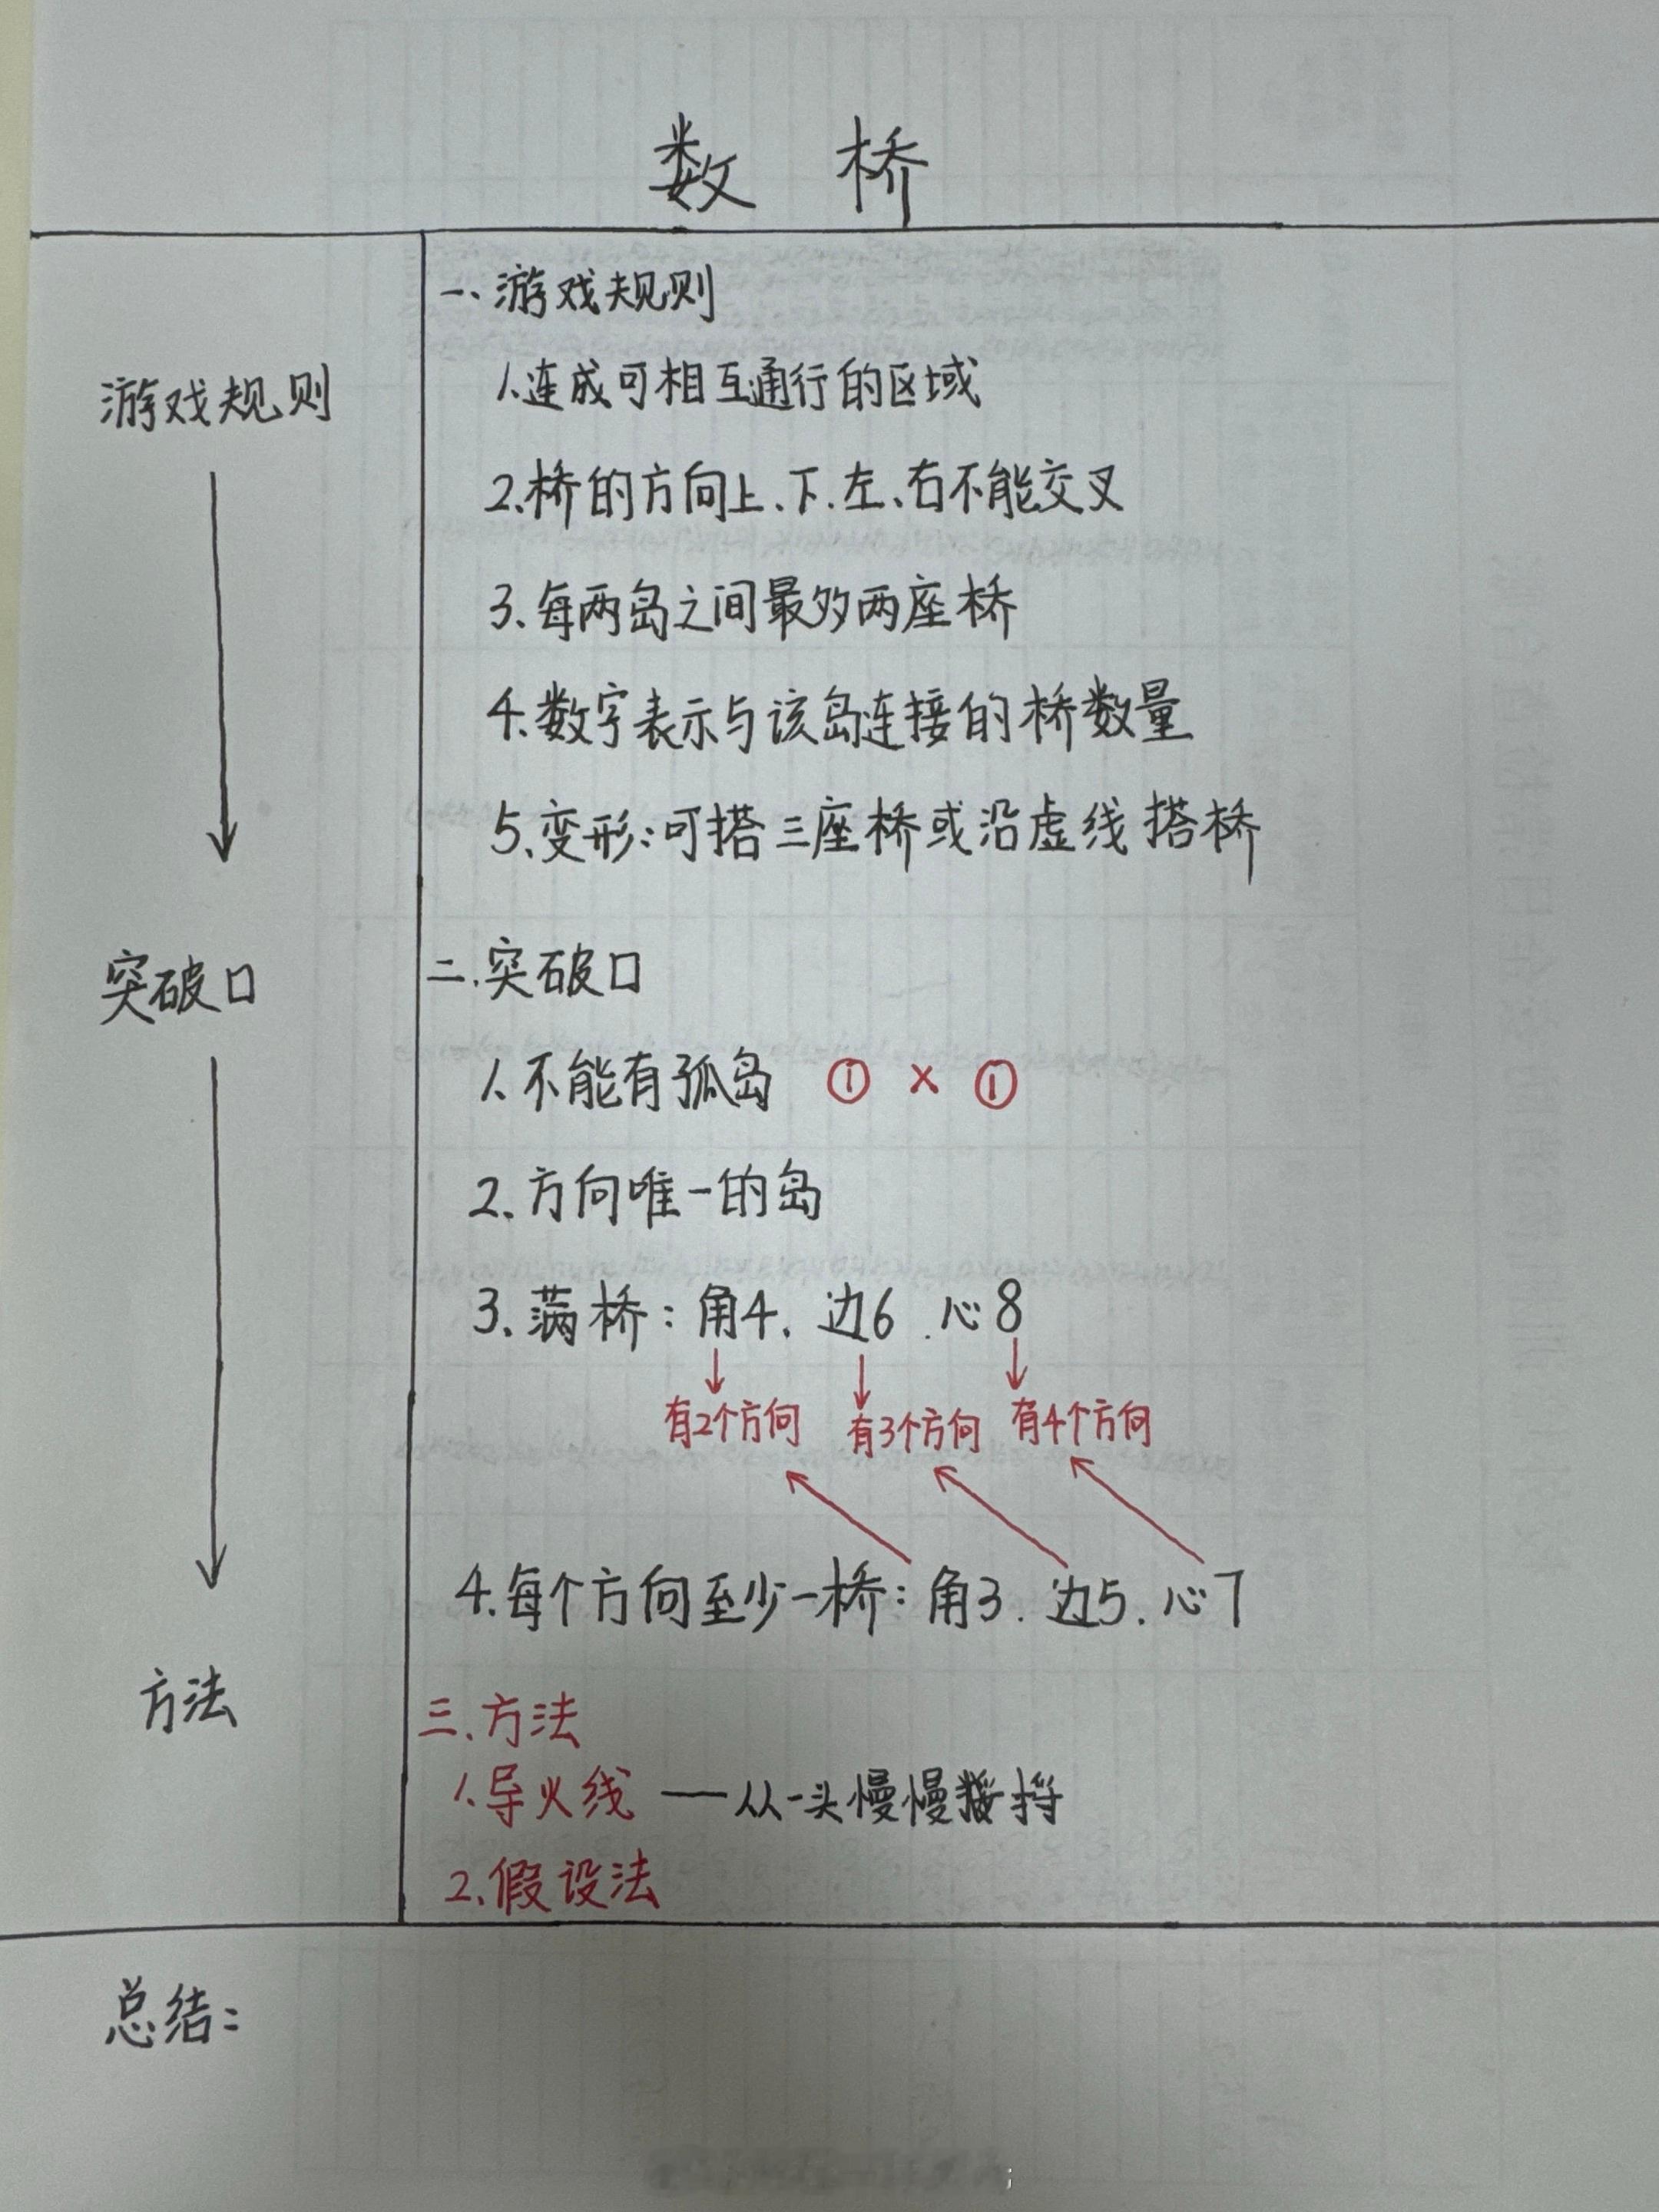 数 桥
游戏规则
突破口
方法
一、游戏规则
1.连成可相互通行的区域
2.桥的方向上、下、左、右不能交叉
3.每两岛之间最多两座桥
4.数字表示与该岛连接的桥数量
5.变形:可搭三座桥或沿虚线搭桥
二.突破口
1.不能有孤岛 ① × ①
2.方向唯一的岛
3.满桥:角4、边6、心8
有2个方向 有3个方向 有4个方向
4.每个方向至少一桥:角3.边5.心7
三.方法
1.导火线 —— 从一头慢慢捋
2.假设法
总结: